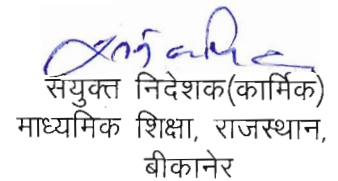 सयुक्त निदेशक(कार्मिक)
माध्यमिक शिक्षा, राजस्थान,
बीकानेर